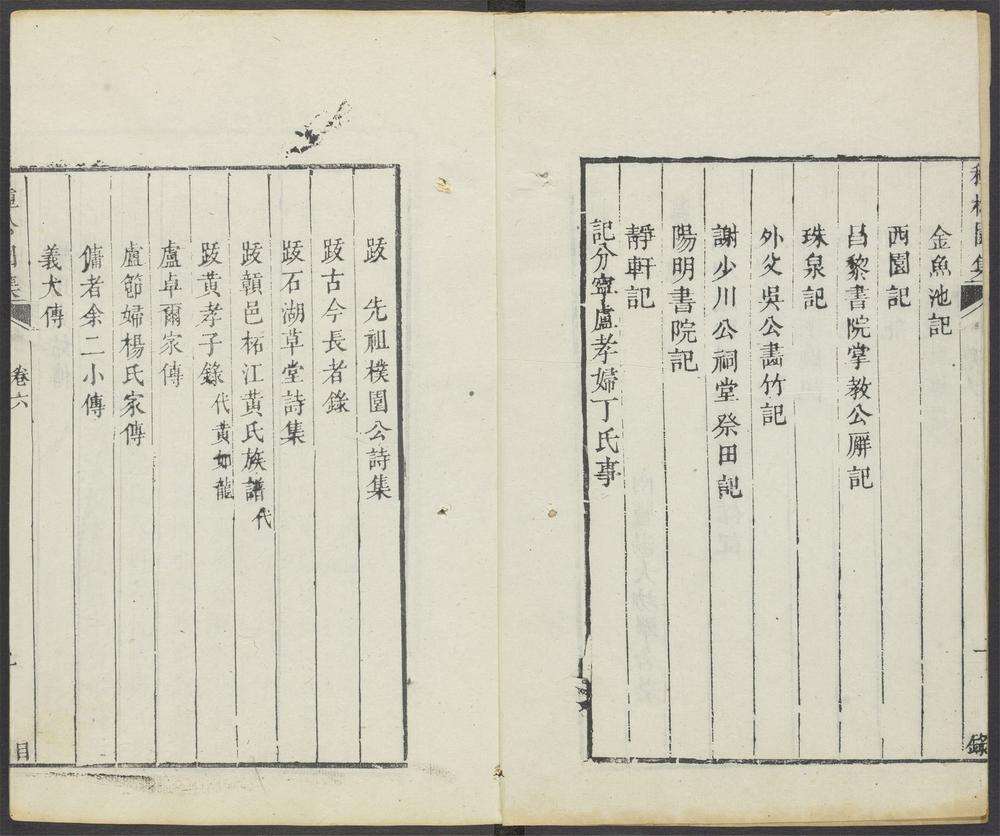 金魚池記
西園記
昌黎書院掌教公廨記
珠泉記
外父吳公畵竹記
謝少川公祠堂祭田記
陽明書院記
靜軒記
記分寧盧孝婦丁氏事
錄
跋 先祖樸園公詩集
跋古今長者錄
跋石湖草堂詩集
跋贑邑柘江黃氏族譜代
跋黃孝子錄代黃如龍
盧卓爾家傳
盧節婦楊氏家傳
傭者余二小傳
義犬傳
卷六
目